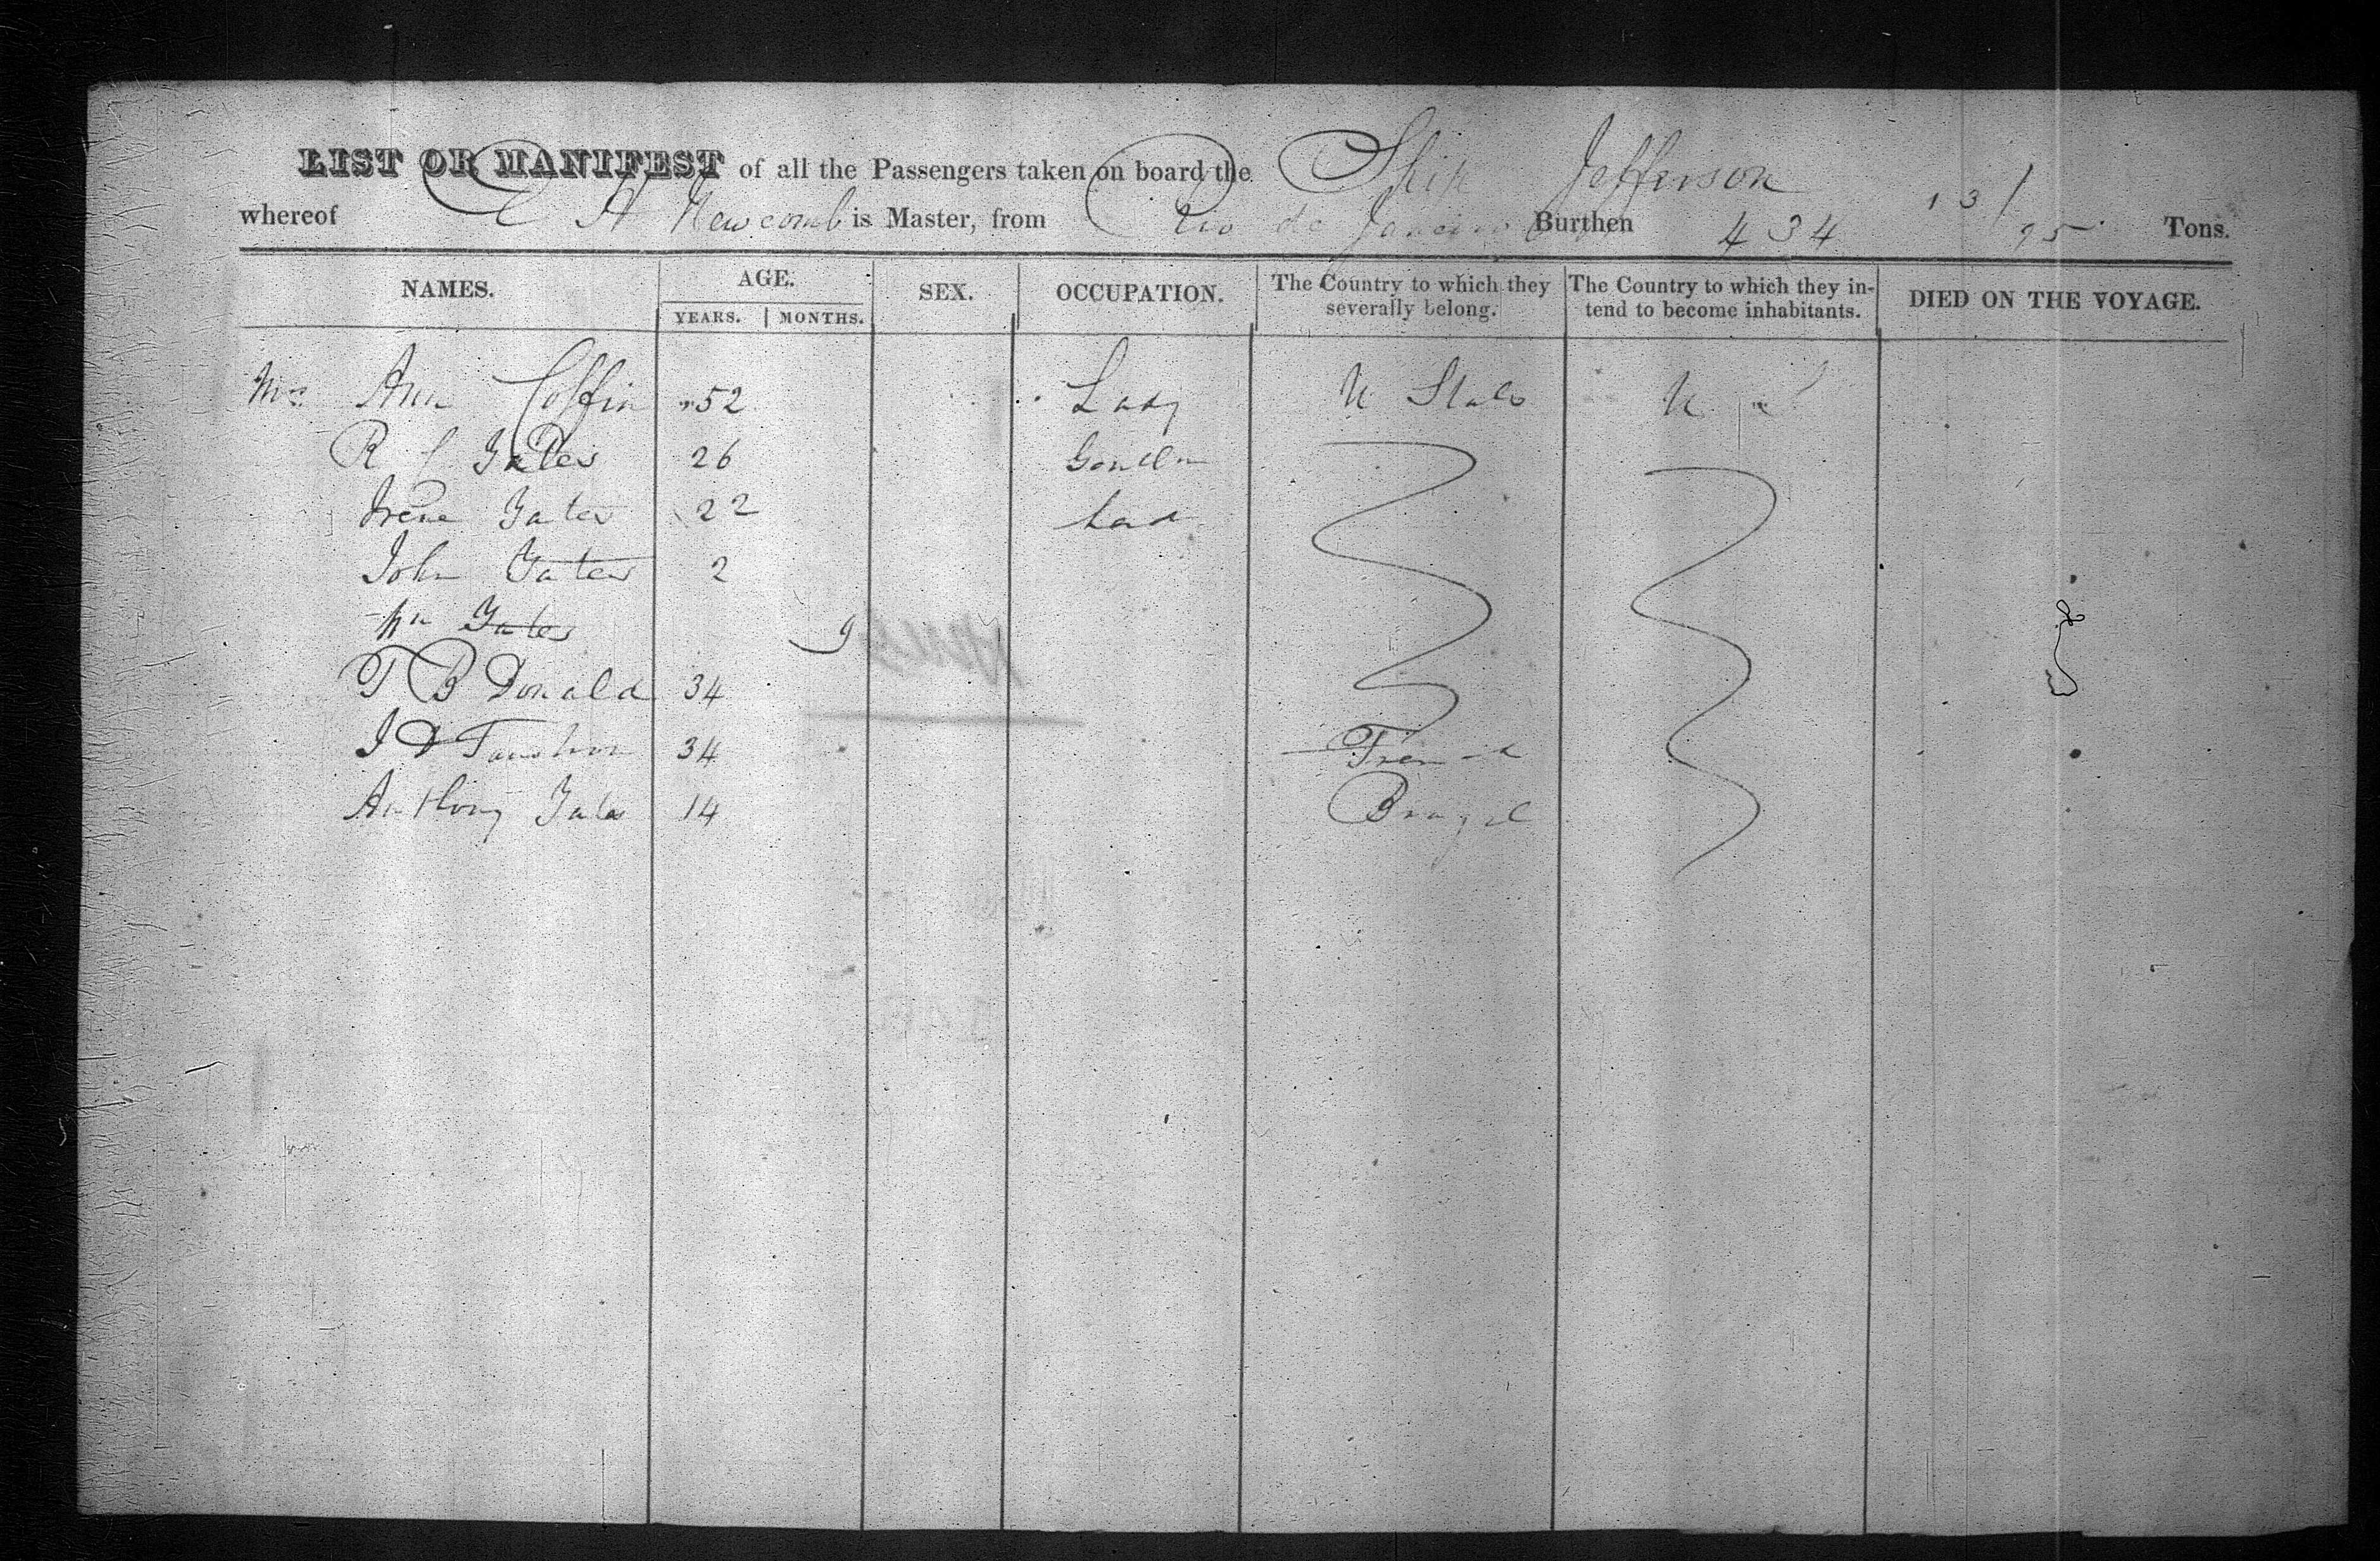 LIST OR MANIFEST of all the Passengers taken on board the Ship Jefferson
whereof C H Newcomb is Master, from Rio de Janeiro Burthen 434 13/95 Tons.
NAMES. AGE. SEX. OCCUPATION. The Country to which they severally belong. The Country to which they intend to become inhabitants. DIED ON THE VOYAGE.
YEARS. MONTHS.
Mrs Ann Coffin 52 Lady U States U
R Yates 26 Gentlm
Irene Yates 22 Lad
John Yates 2
Yates 9
T B Donald 34
J D 34
Anthony Yates 14 Brazil